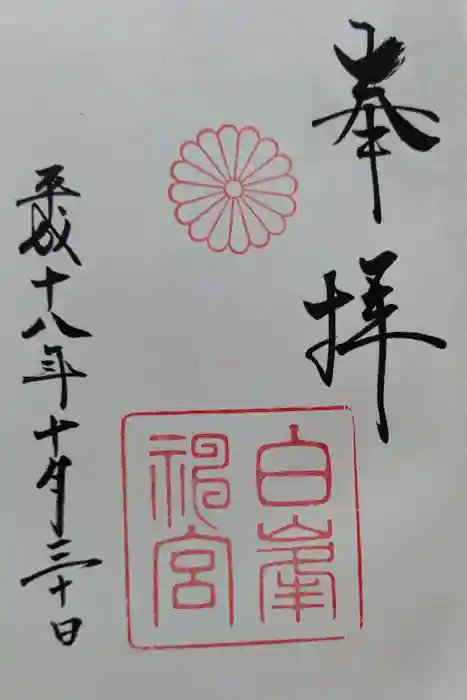 奉拝
白峯
神宮
平成十八年十月三十日